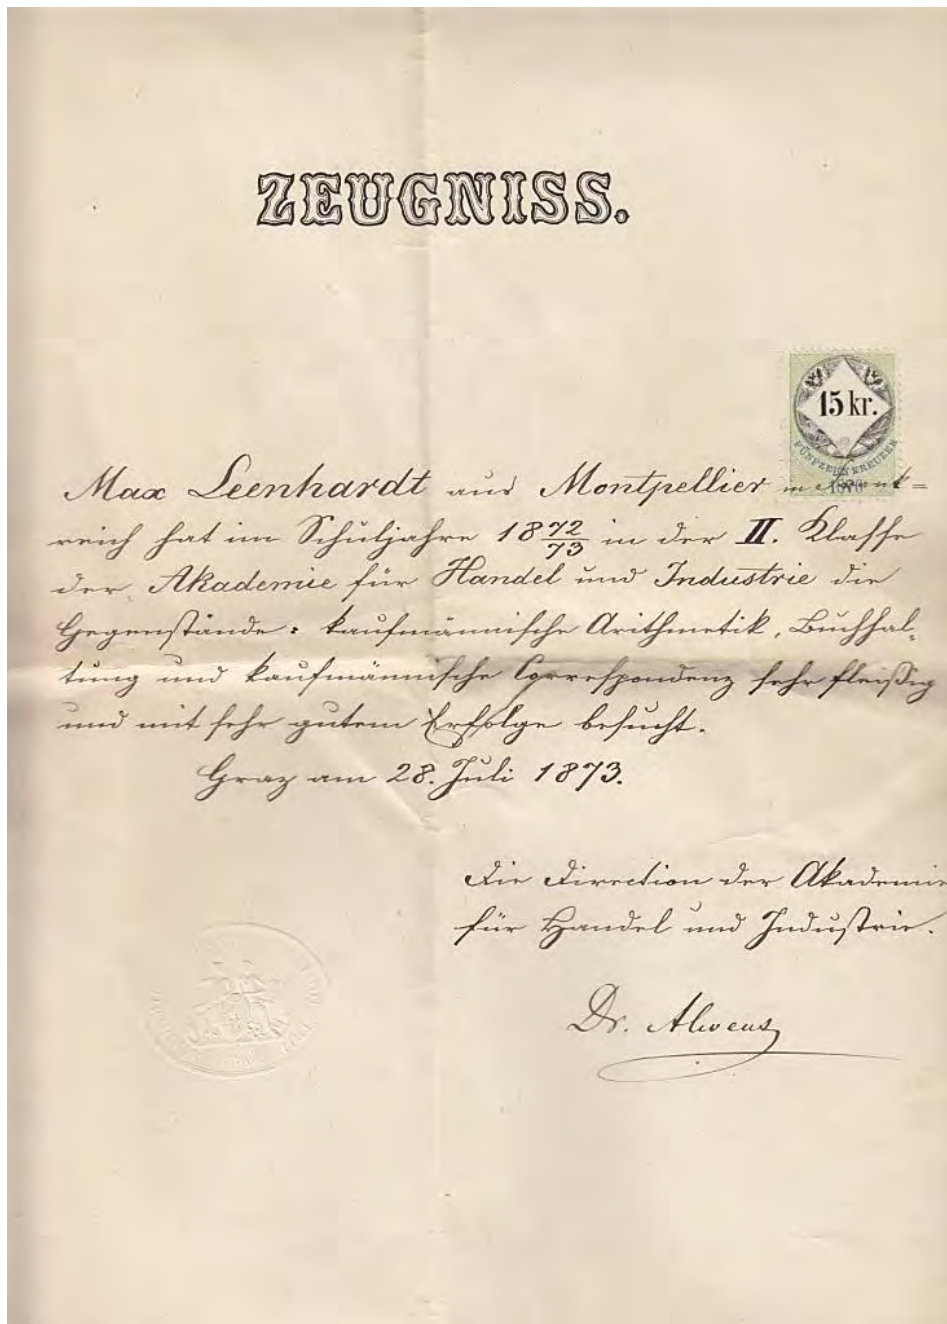 ZEUGNISS.
15 kr.
FÜNFZEHN KREUZER
1870
Max Leenhardt aus Montpellier in Frank=
reich hat im Schuljahre 18 72/73 in der II. Klasse
der Akademie für Handel und Industrie die
Gegenstände: kaufmännische Arithmetik, Buchhal-
tung und kaufmännische Correspondenz sehr fleißig
und mit sehr gutem Erfolge besucht.
Graz am 28. Juli 1873.
Die Direction der Akademie
für Handel und Industrie.
Dr. Alwens